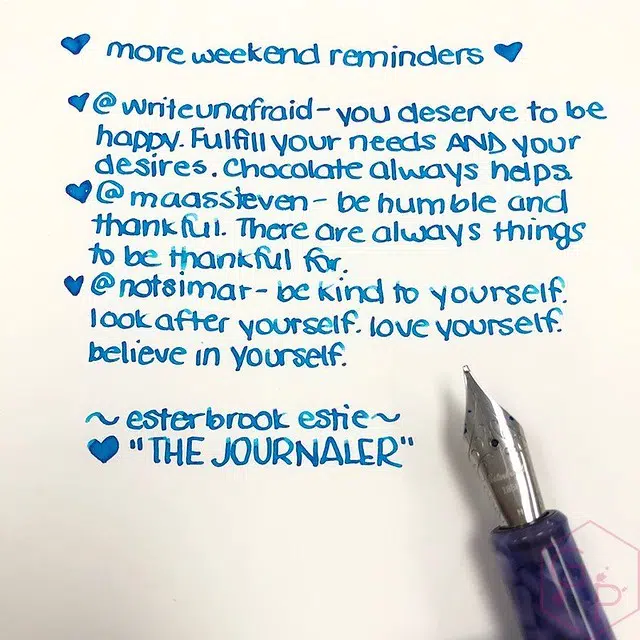 ♥ more weekend reminders ♥
♥ @writeunafraid - you deserve to be
happy. Fulfill your needs AND your
desires. Chocolate always helps.
♥ @maassieven - be humble and
thankful. There are always things
to be thankful for.
♥ @notsimar - be kind to yourself.
look after yourself. love yourself.
believe in yourself.
~ esterbrook estie ~
♥ "THE JOURNALER"